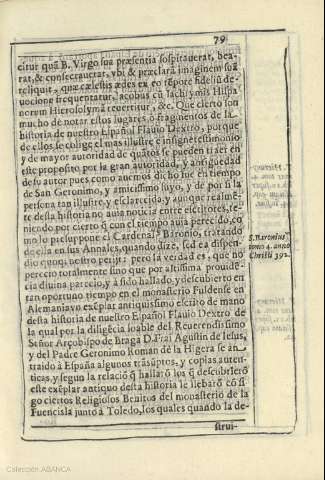 79
citur quã B. Virgo sua præsentia sospitauerat, bea-
rat, & consecrauerat, vbi & præclarã imaginem suã
reliquit, quæ cælestis ædes ex eo tẽpore fideliũ de-
uocione frequentatur, Iacobus cũ sachymijs Hispa
norum Hierosolymã reuertitur, &c. Que cierto son
mucho de notar estos lugares ò fragmentos de la
historia de nuestro Español Flauio Dextro, porque
de ellos se colige el mas illustre è insigne testimonio
y de mayor autoridad de quãtos se pueden traer en
este proposito por la gran autoridad, y antiguedad
de su autor pues como auemos dicho fue en tiempo
de San Geronimo, y amicissimo suyo, y de por si la
persona tan illustre, y esclarecida, y aunque realmẽ-
te desta historia no auia noticia entre escritores, te-
niendo por cierto q̃ con el tiempo auia perecido, co
mo lo presuppone el Cardenal Baronio, tratando
de ella en sus Annales, quando dize, sed ea dispen-
dio quoq; nostro perijt: pero la verdad es, que no
perecio totalmente sino que por altissima prouidẽ-
cia diuina parecio, y à sido hallado, y descubierto en
tan oportuno tiempo en el monasterio Fuldense en
Alemania vn exẽplar antiquissimo escrito de mano
desta historia de nuestro Español Flauio Dextro de
la qual por la diligẽcia loable del Reuerendissimo
Señor Arçobispo de Braga D. Frai Agustin de Iesus,
y del Padre Geronimo Romàn de la Higera se an
traido à España algunos trãsuptos, y copias auten-
ticas, y segun la relaciõ q̃ hallarõ los q̃ descubrierõ
este exẽplar antiquo desta historia le lleharõ cõ si
go ciertos Religiosos Benitos del monasterio de la
Fuencisla junto à Toledo, los quales quando la de-
strui-
S. Baronius
tomo 4. anno
Christi 392.
Colección ABANCA